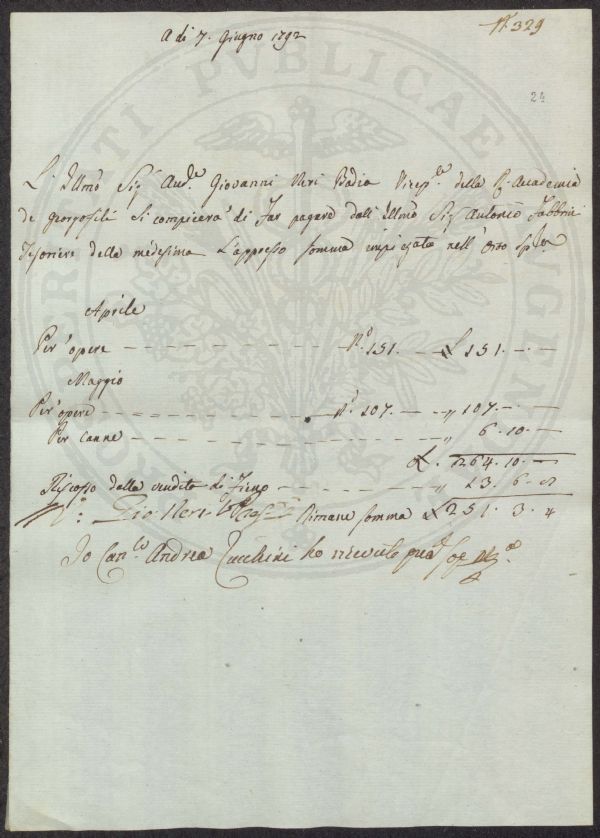 N. 329
A di 7. Giugno 1792
24
L'Illmo Sigr Audre Giovanni Neri Badia Viceple della Rl. Accademia
de Georgofili si compiacera di far pagare dall'Illmo Sigr Antonio Fabbrini
Tesoriere della medesima l'appresso somma impiegata nell'Orto Sple
Aprile
Per opere N.o 151. £ 151. -
Maggio
Per opere N.o 107. - " 107. -
Per canne " 6. 10. -
£. 264. 10. -
Riscosso dalla vendita di Fieno " 13. 6. 8
Gio. Neri Rimane somma £ 251. 3. 4
Io Canco Andrea Zucchini ho ricevuto
PUBLICAE
PROSPERITATI